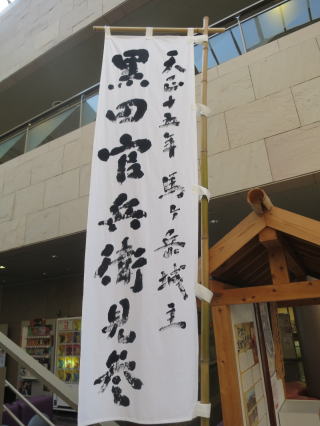 天正十五年 馬ヶ岳城主
黒田官兵衛見参